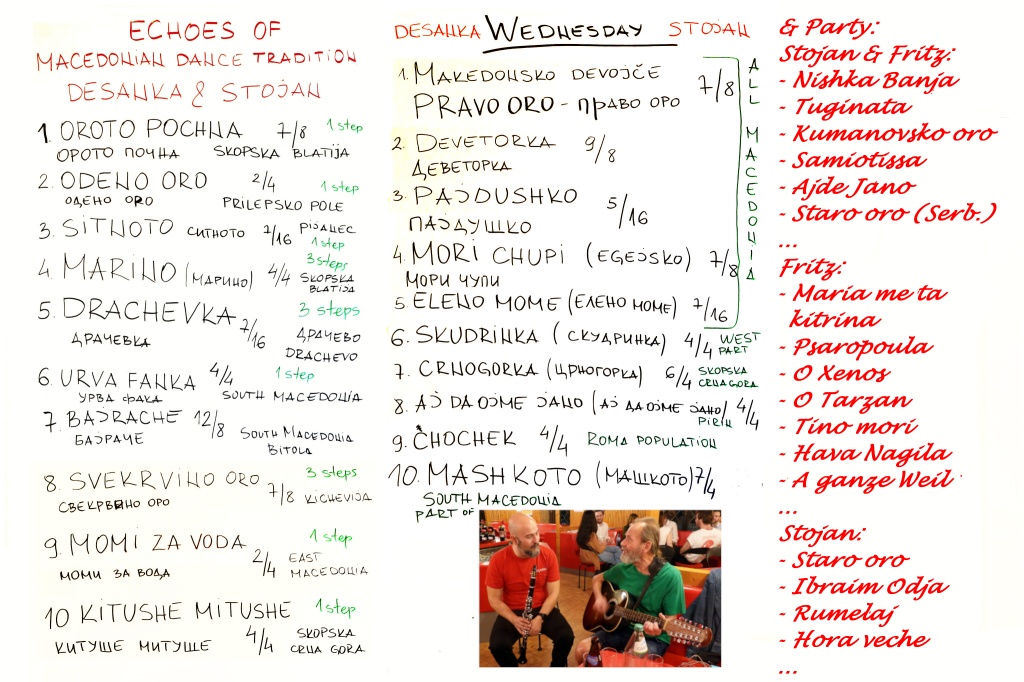 ECHOES OF
MACEDONIAN DANCE TRADITION
DESANKA & STOJAN
1 OROTO POCHNA 7/8 1 step
ОРОТО ПОЧНА SKOPSKA BLATIJA
2. ODENO ORO 2/4 1 step
ОДЕНО ORO PRILEPSKO POLE
3. SITNOTO СИТНОТО 7/16 PIJANEC
1 step
4. MARINO (МАРИНО) 4/4 3 steps
SKOPSKA BLATIJA
5. DRACHEVKA 7/16 3 steps
ДРАЧЕВКА ДРАЧЕВО
DRACHEVO
6. URVA FANKA 4/4 1 step
УРВА ФАКА SOUTH MACEDONIA
7. BAJRACHE 12/8
БАЈРАЧЕ SOUTH MACEDONIA
BITOLA
8. SVEKRVINO ORO 3 steps
СВЕКРВИНО ОРО 7/8 KICHEVIJA
9. MOMI ZA VODA 1 step
МОМИ ЗА ВОДА 2/4 EAST
MACEDONIA
10 KITUSHE MITUSHE 1 step
КИТУШЕ МИТУШЕ 4/4 SKOPSKA
CRNA GORA
DESANKA WEDNESDAY STOJAN
1. MAKEDONSKO DEVOJČE 7/8
PRAVO ORO - ПРАВО ОРО
2. DEVETORKA 9/8
ДЕВЕТОРКА
3. PAJDUSHKO 5/16
ПАЈДУШКО
4. MORI CHUPI (EGEJSKO) 7/8
МОРИ ЧУПИ
5 ELENO MOME (ЕЛЕНО МОМЕ) 7/16
ALL MACEDONIA
6. SKUDRINKA (СКУДРИНКА) 4/4 WEST
PART
7. CRNOGORKA (ЦРНОГОРКА) 6/4 SKOPSKA
CRNA GORA
8. AJ DA OJME JANO (АЈ ДА ОЈМЕ ЈАНО) 4/4
PIRIN
9. ČHOCHEK 4/4 ROMA POPULATION
10. MASHKOTO (МАШКОТО) 7/4
SOUTH MACEDONIA
PART OF
& Party:
Stojan & Fritz:
- Nishka Banja
- Tuginata
- Kumanovsko oro
- Samiotissa
- Ajde Jano
- Staro oro (Serb.)
...
Fritz:
- Maria me ta
kitrina
- Psaropoula
- O Xenos
- O Tarzan
- Tino mori
- Hava Nagila
- A ganze Weil
...
Stojan:
- Staro oro
- Ibraim Odja
- Rumelaj
- Hora veche
...